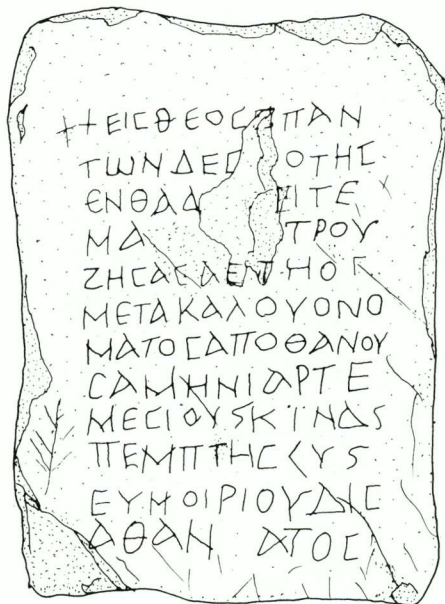 +ΕΙϹΘΕΟϹΟΠΑΝ
ΤΩΝΔΕϹ ΟΤΗϹ
ЄΝΘΑΔ ΙΤΕ
ΜΑ ΤΡΟΥ
ΖΗϹΑϹΑΕΝΤΗΟϹ
ΜΕΤΑΚΑΛΟΥΟΝΟ
ΜΑΤΟϹΑΠΟΘΑΝΟΥ
ϹΑΜΗΝΙΑΡΤΕ
ΜΕϹΙΟΥSΚΪΝΔS
ΠΕΜΠΤΗϹ
ΕΥΜΟΙΡΙΟΥΔΙϹ
ΑΘΑΝ ΑΤΟϹ